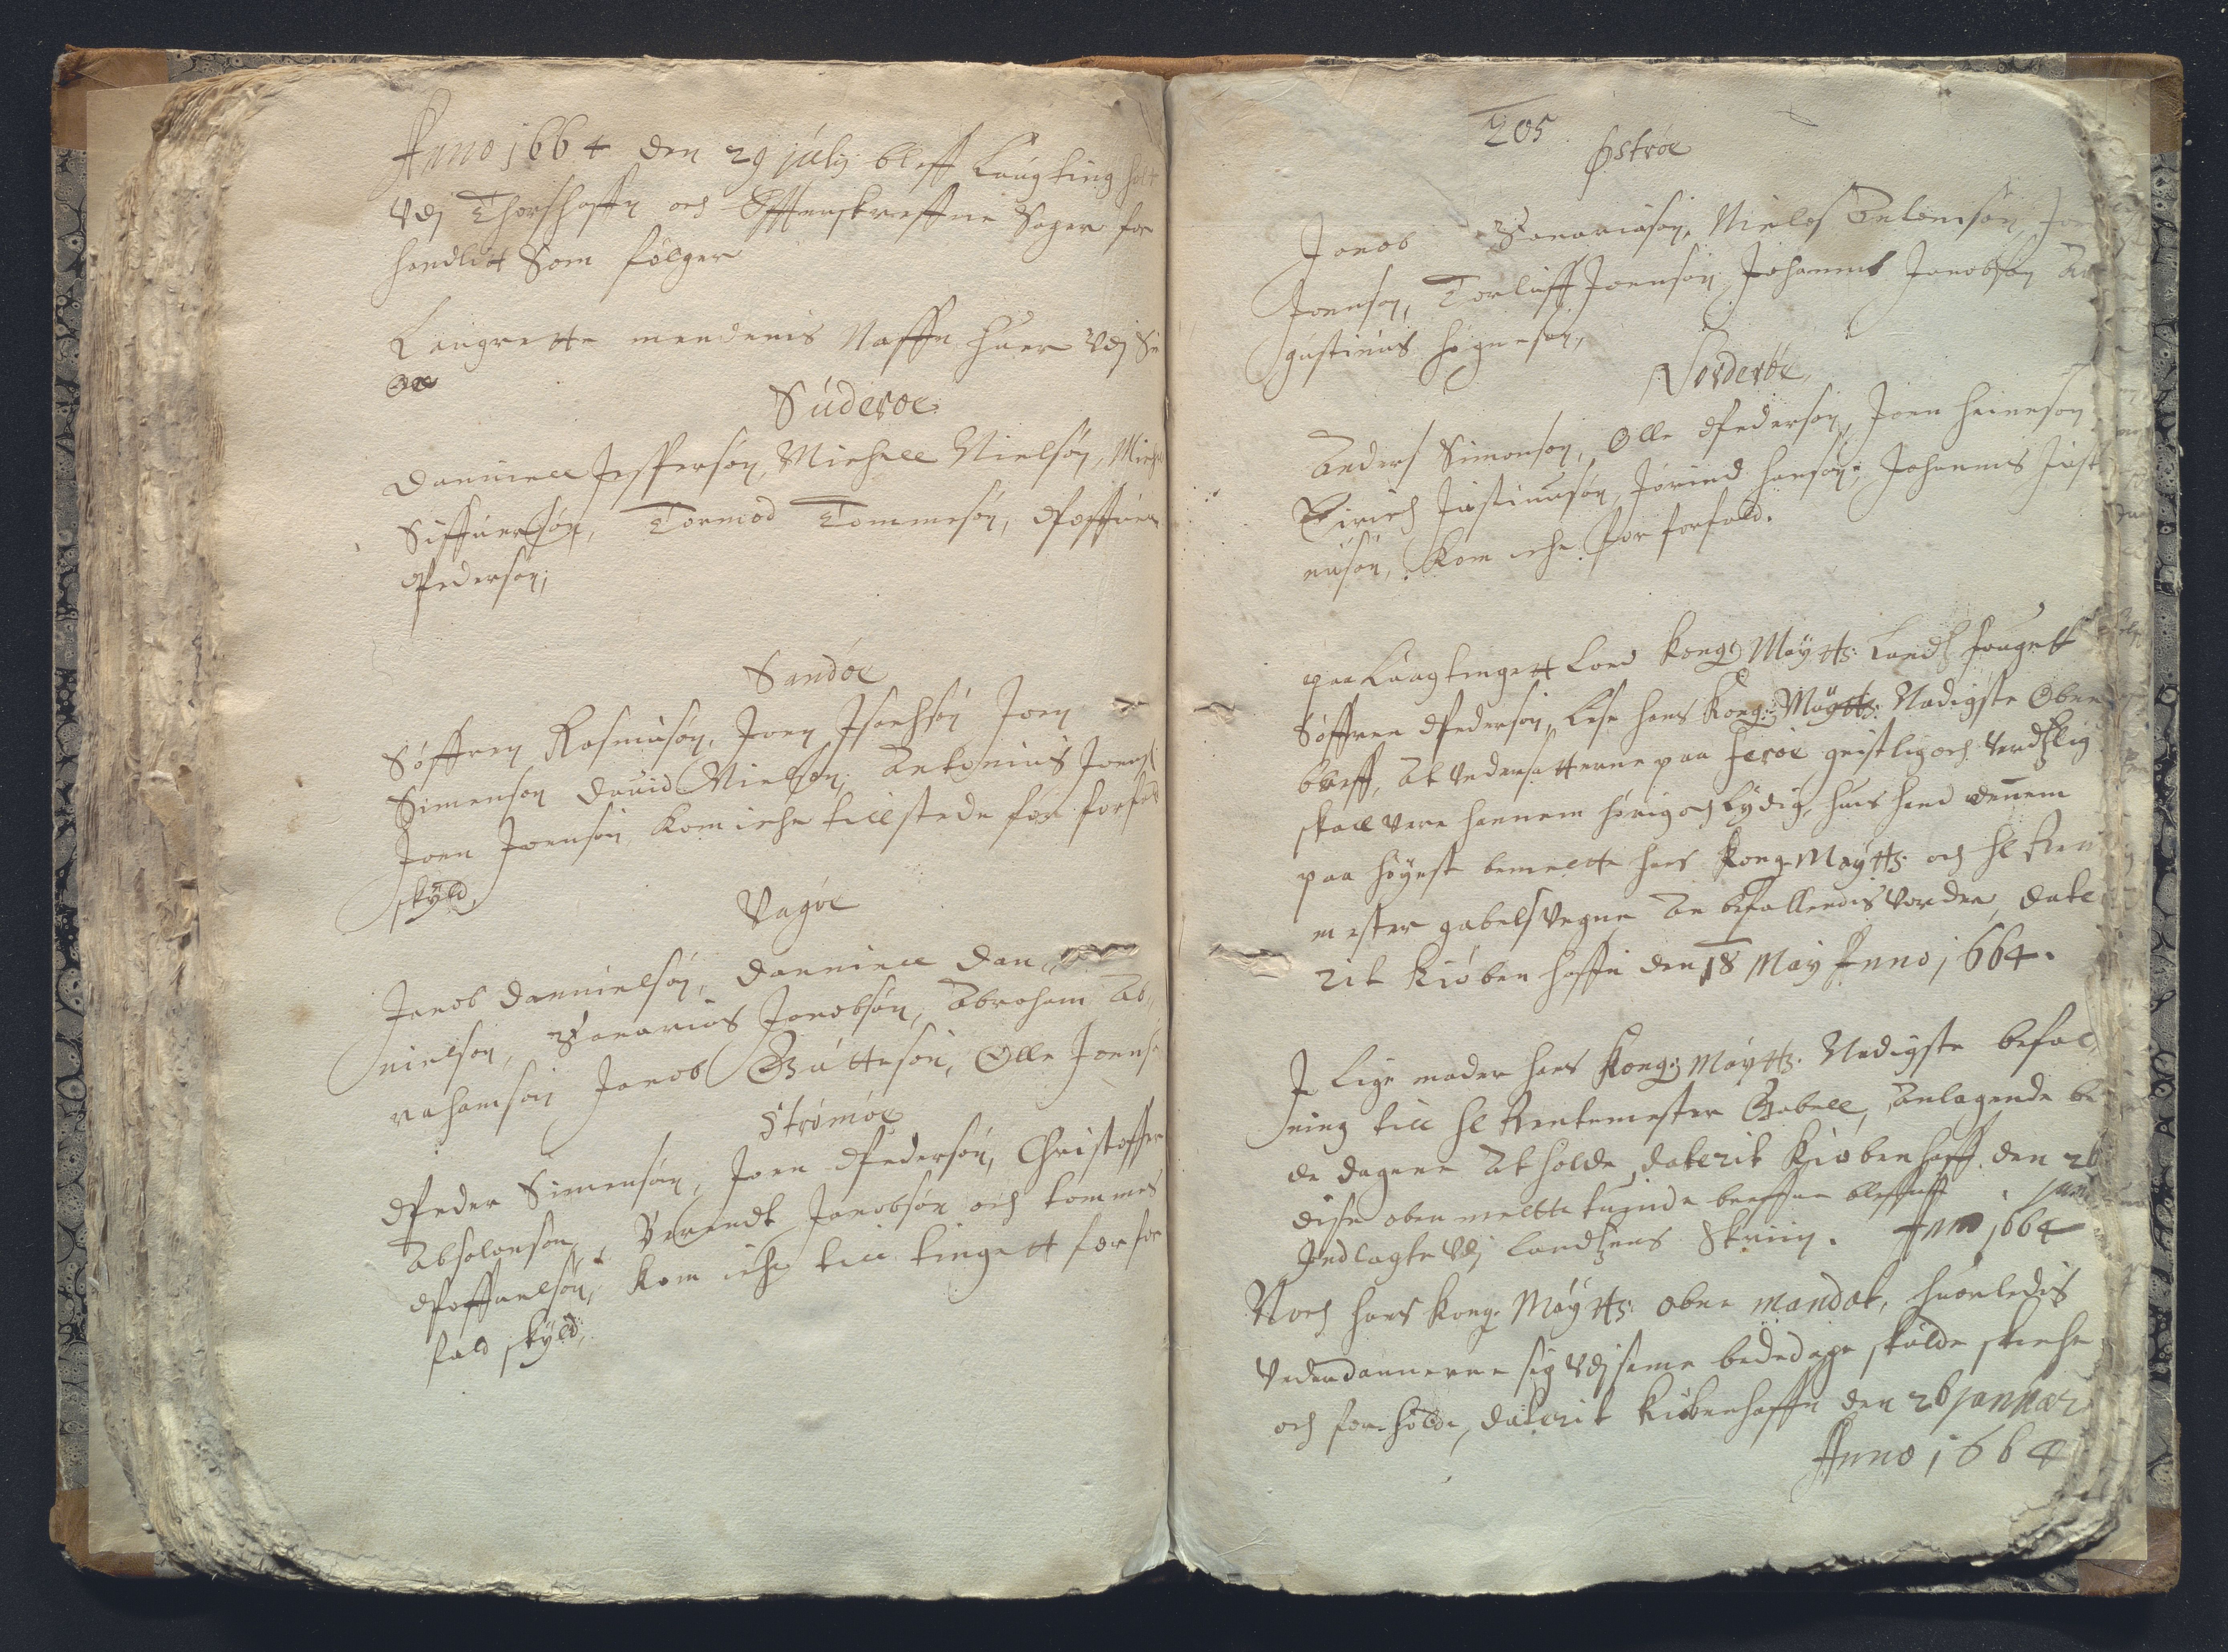 Anno 1664 den 29 july bleff Laugting holt
Vdj Thorshaffn och Effterskreffne Sager for
handlit Som følger
Laugrette mendenis Naffn huer Vdj Sin
Øe
Suderøe
Danniell Jesspersøn, Michell Nielsøn, Michell
Siffuersøn, Tormod Tommesøn, Poffuel
Pedersøn,
Sandøe
Søffren Rasmusøn, Joen Isachsøn Joen
Simensøn Dauid Nielsøn, Antonius Joensøn
Joen Joensøn kom iche till stede for forfald
skyld,
Vagøe
Jacob Dannielsøn, Danniell Dan
nielsøn, Zacarias Jacobsøn, Abraham Ab,
rahamsøn Jacob Guttesøn, Olle Joens
Strømøe
Peder Simensøn, Joen Pedersøn, Christoffer
Absolonsøn, Berendt Jacobsøn och tommes
Poffuelsøn, kom iche till tingett for for
fald skyld,
205
Østrøe
Jacob Zacariasøn, Niels Joensøn, Joen
Joensøn, Torluff Joensøn Johannes Jacobsøn Au
gustinus høgnesøn,
Norderøe
Anders Simonsøn, Olle Pedersøn, Joen heinesøn
Eirich Justinusøn, Jørind hansøn, Johannes Just
nusøn, kom iche for forfald.
paa Laugtingett Loed kong: Maytts: Landz fougett
Søffren Pedersøn, Lese hans Kong: Maytts: Nadigste Obne
breff, At Vndersatterne paa Ferøe geistlig och Verdzlig
skall Vere hannem hørig och Lydig, huis hand dennem
paa høyest bemelte hans Kong: Maytts: och hl Rente
mester gabels Vegne An befallendis Vorder, date
rit Kiøben haffn den 18 May Anno 1664.
J Lige mader hans Kong: Maytts: Nadigste befal,
ning till hl Rentemester Gabell, Anlagende be
de dagene At holde, daterit Kiøbenhaffn den 26
disse oben meltte tuinde breffue bleff Janr
Jndlagte Vdj Landzens Skrin. Anno 1664
Noch hans kong: Maytts: obne mandat, huorledis
Vndersaatterne sig Vdj same bededage skulde skiche
och forholde, daterit Kiøbenhaffn den 26 januar
Anno 1664